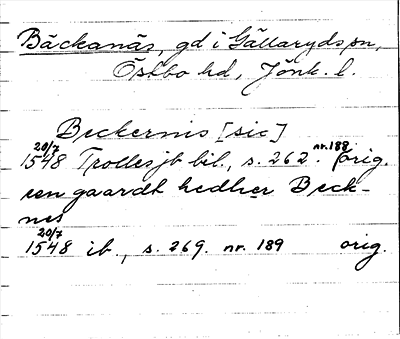 Bäckanäs, gd i Gällaryds sn,
Östbo hd, Jönk. l.
Beckernis [sic]
20/7 1548 Trolles jb bil., s. 262. nr. 188 orig.
een gaardt hedher Beck-
nes
20/7 1548 ib., s. 269. nr. 189 orig.